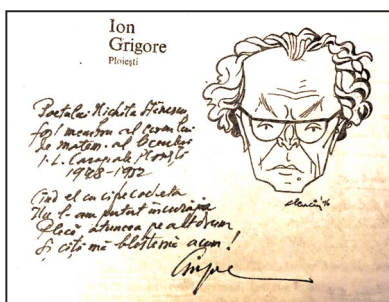 Ion
Grigore
Ploiești
Poetului Nichita Stănescu
fost membru al cercului
de matem. al liceului
I.L. Caragiale Ploiești
1948-1952
Cînd el cu
Nu l-am putut încuraja
Plecă atuncea pe alt drum
Și cîți mă blestemă acum!